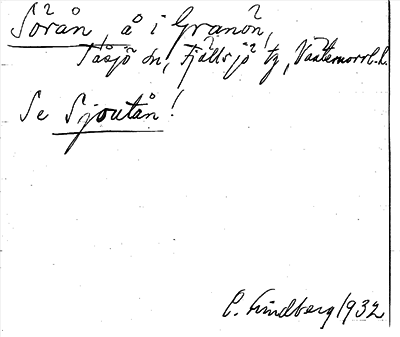 Sörån, å i Granön,
Tåsjö sn, Fjällsjö tg, Västernorrl. l.
Se Sjoutån!
C. Lindberg 1932